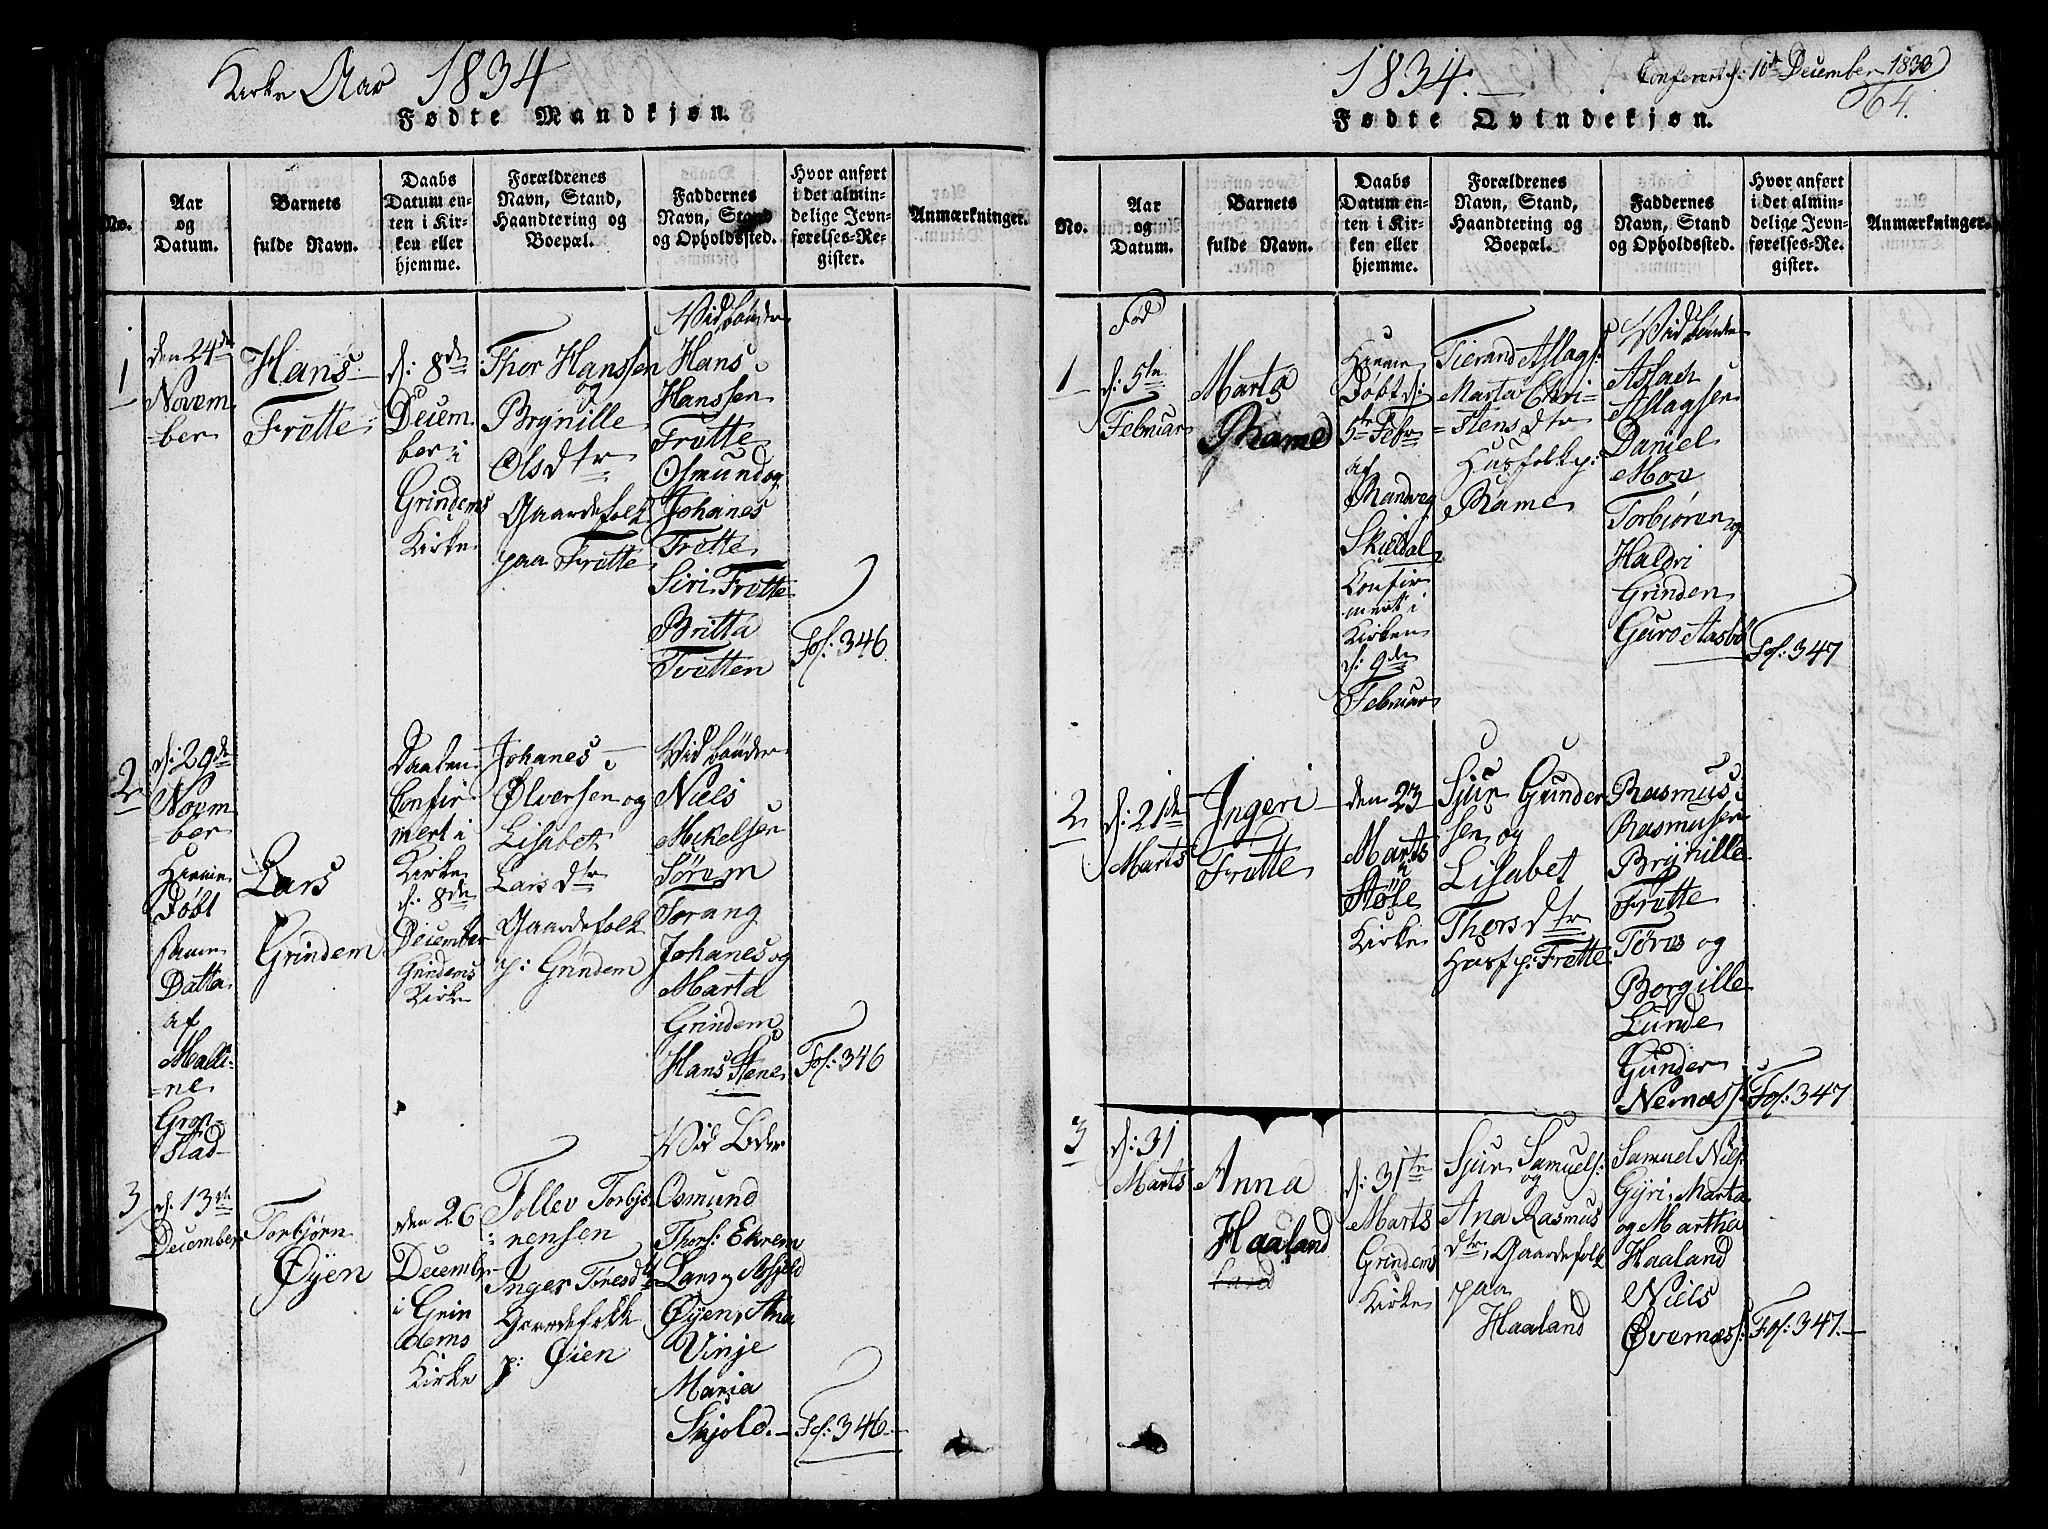 Kirke Aar 1834
Fødte Mandkjøn.
No.
Aar
og
Datum.
Barnets
fulde Navn.
Daabs
Datum en-
ten i Kir-
ken eller
hjemme.
Forældrenes
Navn, Stand,
Haandtering og
Boepæl.
Faddernes
Navn, Stand
og Opholdssted.
Hvor anført
i det almin-
delige Jevn-
førelses-Re-
gister.
Anmærkninger.
1
den 24de
Novem
=ber
Hans
Frøtte
d: 8de
Decem
ber i
Grindems
Kirke
Thor Hanssen
og
Brynille
Olsdtr
Gaardefolk
paa Frøtte
Hans
Hanssen
Frøtte
Osmund og
Johanes
Frøtte
Siri Frøtte
Britta
Tvetten
Fol: 346
2
d: 29de
Novm
ber
Hieme
Døbt
Datta
af
Malli-
=ne
Grøn-
stad
Lars
Grindem
Daaben
Confir
mert i
Kirke
d: 8de
December
Grindems
Kirke
Johanes
Ølversen og
Lisabet
Larsdtr
Gaardefolk
p: Grindem
Niels
Mekelsen
Sørem
Torang
Johanes og
Marta
Grindem
Hans Stene
Fol: 346
3
d: 13de
December
Torbjørn
Øyen
den 26
December
i Grin
dems
Kirke
Tollev Torbjø
rensen
Inger Toresdtr
Gaardefolk
p: Øien
Osmund
Thors: Ekrem
Lars og Assjeld
Øyen, Ana
Vinje
Maria
Skjold.
Fol: 346
1834.
Conferert d: 10de December 1833
64.
Fødte Qvindekjøn.
No.
Aar
og
Datum.
Barnets
fulde Navn.
Daabs
Datum en-
ten i Kir-
ken eller
hjemme.
Forældrenes
Navn, Stand,
Haandtering og
Boepæl.
Faddernes
Navn, Stand
og Opholdssted.
Hvor anført
i det almin-
delige Jevn-
førelses-Re-
gister.
Anmærkninger.
1
Fød
d: 5te
Februar
Marta
Rame
Hieme
Døbt d:
5te Febr
af
Randveg
Skieldal
Confir
mert i
Kirken
d: 9de
Februar
Tierand Aslags:
Marta Chri-
=stensdtr
Husfolk p:
Rame
Aslach
Aslagsen
Daniel
Moe
Torbjøren og
Haldri
Grinden
Guro Aasbø
Fol: 347
2
d: 21de
Marts
Ingeri
Frøtte
den 23
Marts
i
Støle
Kirke
Sjur Gunder
sen og
Lisabet
Thorsdtr
Husf p: Frøtte
Rasmus
Rasmusen
Brynille
Frøtte
Tøres og
Borgille
Lunde
Gunder
Nernæs
Fol: 347
3
d: 31
Marts
Anna
Haaland
land
d: 31te
Marts
Grindems
Kirke
Sjur Samuels:
og
Ana Rasmus
dtr, Gaardefolk
paa
Haaland
Samuel Niels:
Gyri, Marta
og Martha
Haaland
Niels
Øvernæs:
Fol: 347.